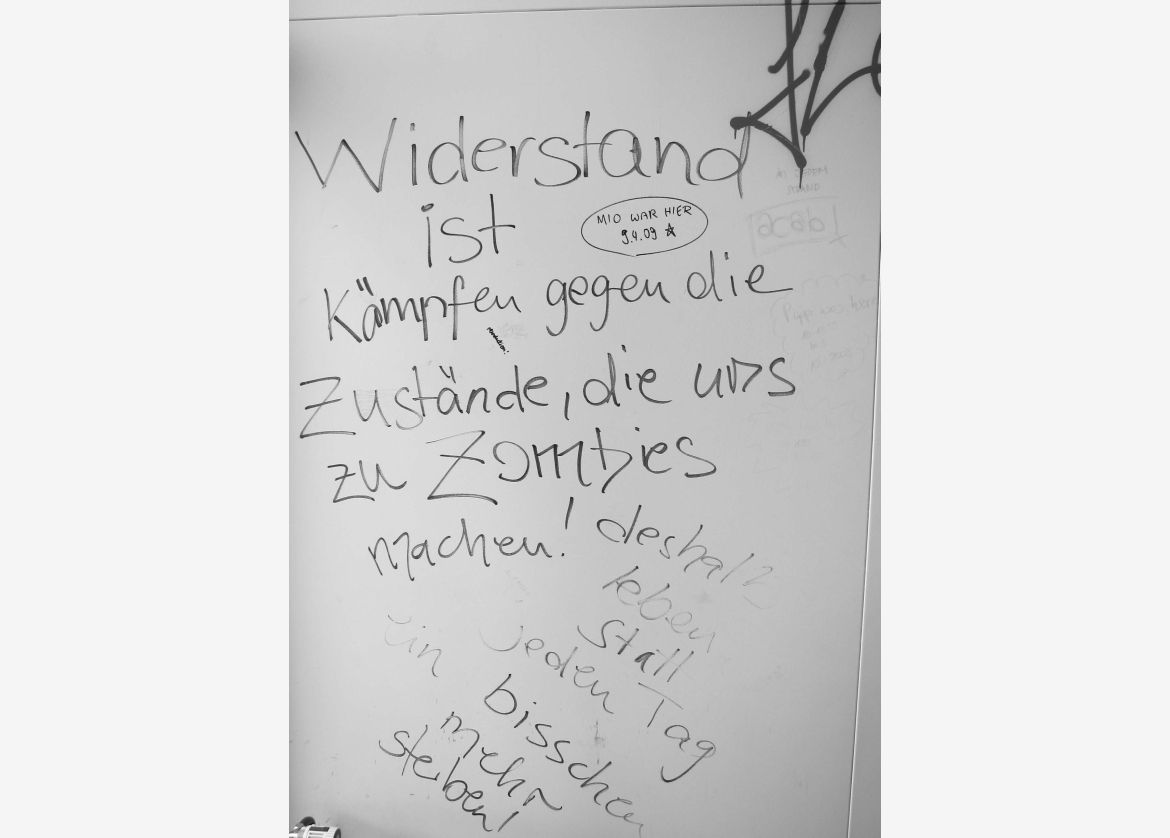 Widerstand
ist
MIO WAR HIER
9.4.09
Kämpfen gegen die
Zustände, die uns
zu Zombies
machen! deshalb
leben
statt
jeden Tag
ein bisschen
mehr
sterben!
acab!